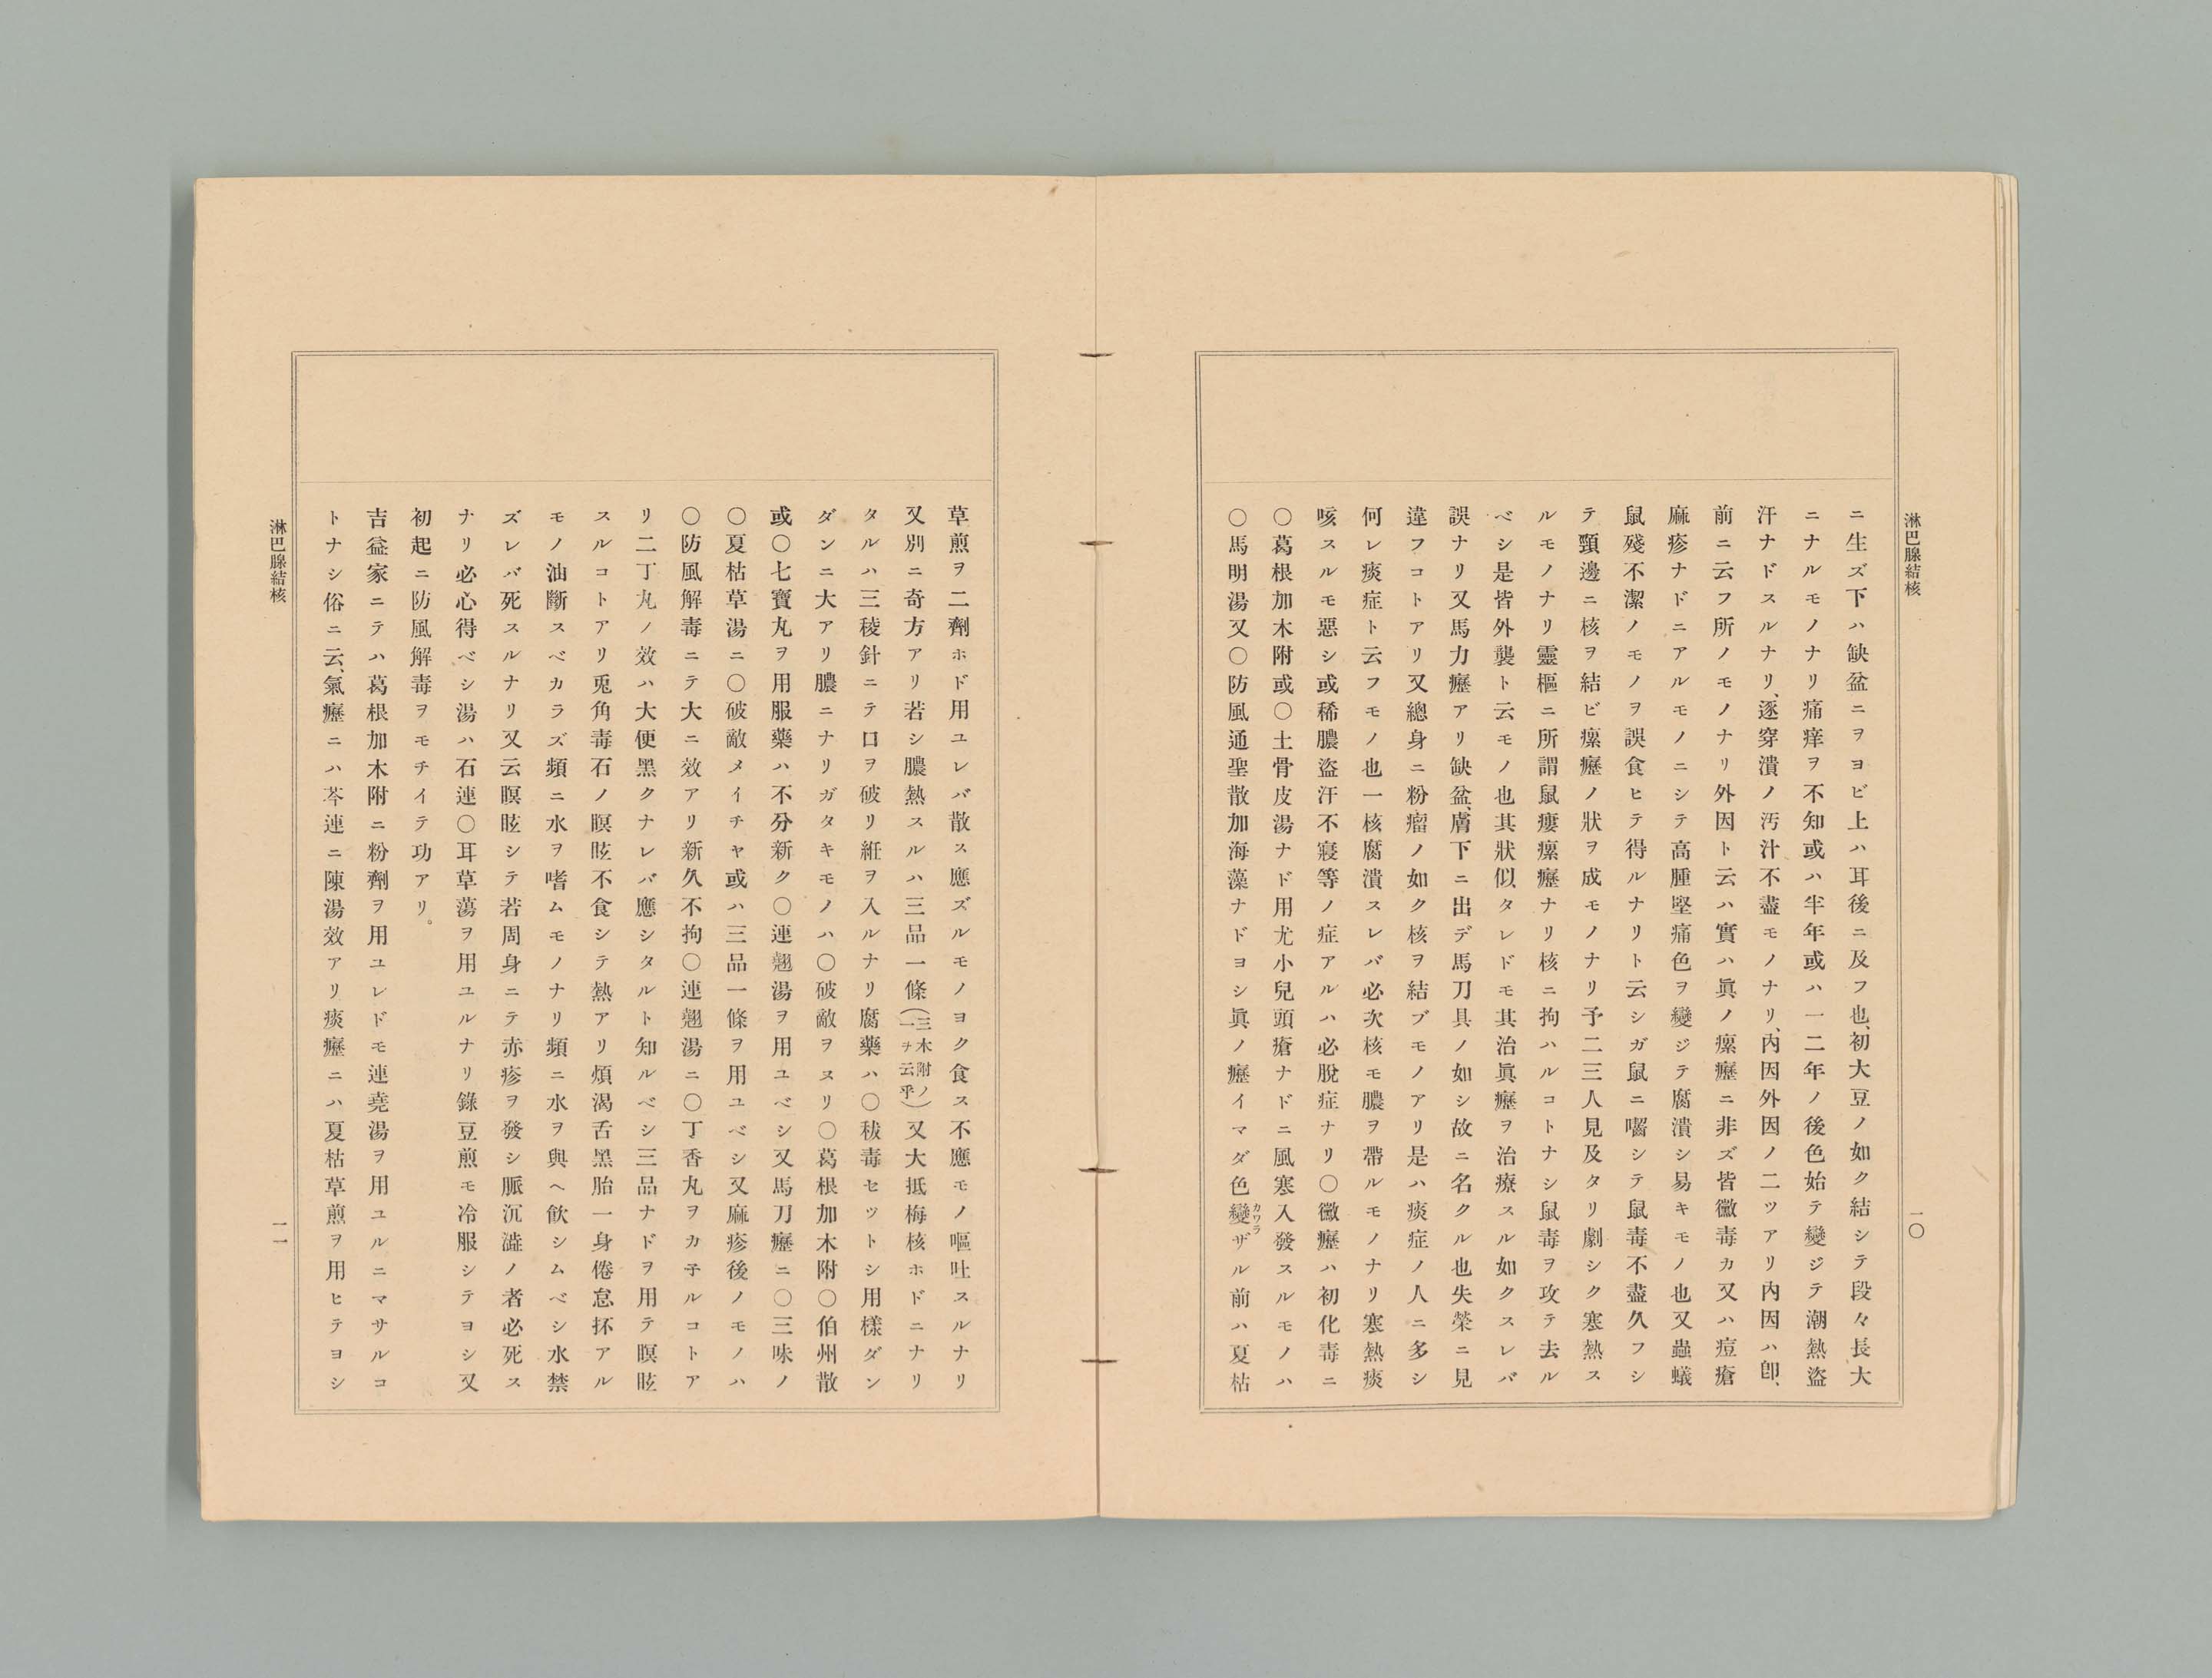 淋巴腺結核
一〇
ニ生ズ下ハ缺盆ニヲヨビ上ハ耳後ニ及フ也、初大豆ノ如ク結シテ段々長大
ニナルモノナリ痛痒ヲ不知或ハ半年或ハ一二年ノ後色始テ變ジテ潮熱盜
汗ナドスルナリ、逐穿潰ノ汚汁不盡モノナリ、內因外因ノ二ツアリ內因ハ卽、
前ニ云フ所ノモノナリ外因ト云ハ實ハ眞ノ瘰癧ニ非ズ皆黴毒カ又ハ痘瘡
麻疹ナドニアルモノニシテ高腫堅痛色ヲ變ジテ腐潰シ易キモノ也又蟲蟻
鼠殘不潔ノモノヲ誤食ヒテ得ルナリト云シガ鼠ニ囓シテ鼠毒不盡久フシ
テ頸邊ニ核ヲ結ビ瘰癧ノ狀ヲ成モノナリ予二三人見及タリ劇シク寒熱ス
ルモノナリ靈樞ニ所謂鼠瘻瘰癧ナリ核ニ拘ハルコトナシ鼠毒ヲ攻テ去ル
ベシ是皆外襲ト云モノ也其狀似タレドモ其治眞癧ヲ治療スル如クスレバ
誤ナリ又馬力癧アリ缺盆、膚下ニ出デ馬刀具ノ如シ故ニ名クル也失榮ニ見
違フコトアリ又總身ニ粉瘤ノ如ク核ヲ結ブモノアリ是ハ痰症ノ人ニ多シ
何レ痰症ト云フモノ也一核腐潰スレバ必次核モ膿ヲ帶ルモノナリ寒熱痰
咳スルモ惡シ或稀膿盜汗不寢等ノ症アルハ必脫症ナリ〇黴癧ハ初化毒ニ
〇葛根加木附或〇土骨皮湯ナド用尤小兒頭瘡ナドニ風寒入發スルモノハ
〇馬明湯又〇防風通聖散加海藻ナドヨシ眞ノ癧イマダ色變カワラザル前ハ夏枯
草煎ヲ二劑ホド用ユレバ散ス應ズルモノヨク食ス不應モノ嘔吐スルナリ
又別ニ奇方アリ若シ膿熱スルハ三品一條(三木附ノ一チ云乎)又大抵梅核ホドニナリ
タルハ三稜針ニテ口ヲ破リ紝ヲ入ルナリ腐藥ハ〇秡毒セツトシ用樣ダン
ダンニ大アリ膿ニナリガタキモノハ〇破敵ヲヌリ〇葛根加木附〇伯州散
或〇七寶丸ヲ用服藥ハ不分新ク〇連翹湯ヲ用ユベシ又馬刀癧ニ〇三味ノ
〇夏枯草湯ニ〇破敵メイチヤ或ハ三品一條ヲ用ユベシ又麻疹後ノモノハ
〇防風解毒ニテ大ニ效アリ新久不拘〇連翹湯ニ〇丁香丸ヲカ子ルコトア
リ二丁丸ノ效ハ大便黑クナレバ應シタルト知ルベシ三品ナドヲ用テ瞑眩
スルコトアリ兎角毒石ノ瞑眩不食シテ熱アリ煩渴舌黑胎一身倦怠抔アル
モノ油斷スベカラズ頻ニ水ヲ嗜ムモノナリ頻ニ水ヲ與ヘ飮シムベシ水禁
ズレバ死スルナリ又云瞑眩シテ若周身ニテ赤疹ヲ發シ脈沉澁ノ者必死ス
ナリ必心得ベシ湯ハ石連〇耳草蕩ヲ用ユルナリ錄豆煎モ冷服シテヨシ又
初起ニ防風解毒ヲモチイテ功アリ。
吉益家ニテハ葛根加木附ニ粉劑ヲ用ユレドモ連堯湯ヲ用ユルニマサルコ
トナシ俗ニ云、氣癧ニハ芩連ニ陳湯效アリ痰癧ニハ夏枯草煎ヲ用ヒテヨシ
淋巴腺結核
一一